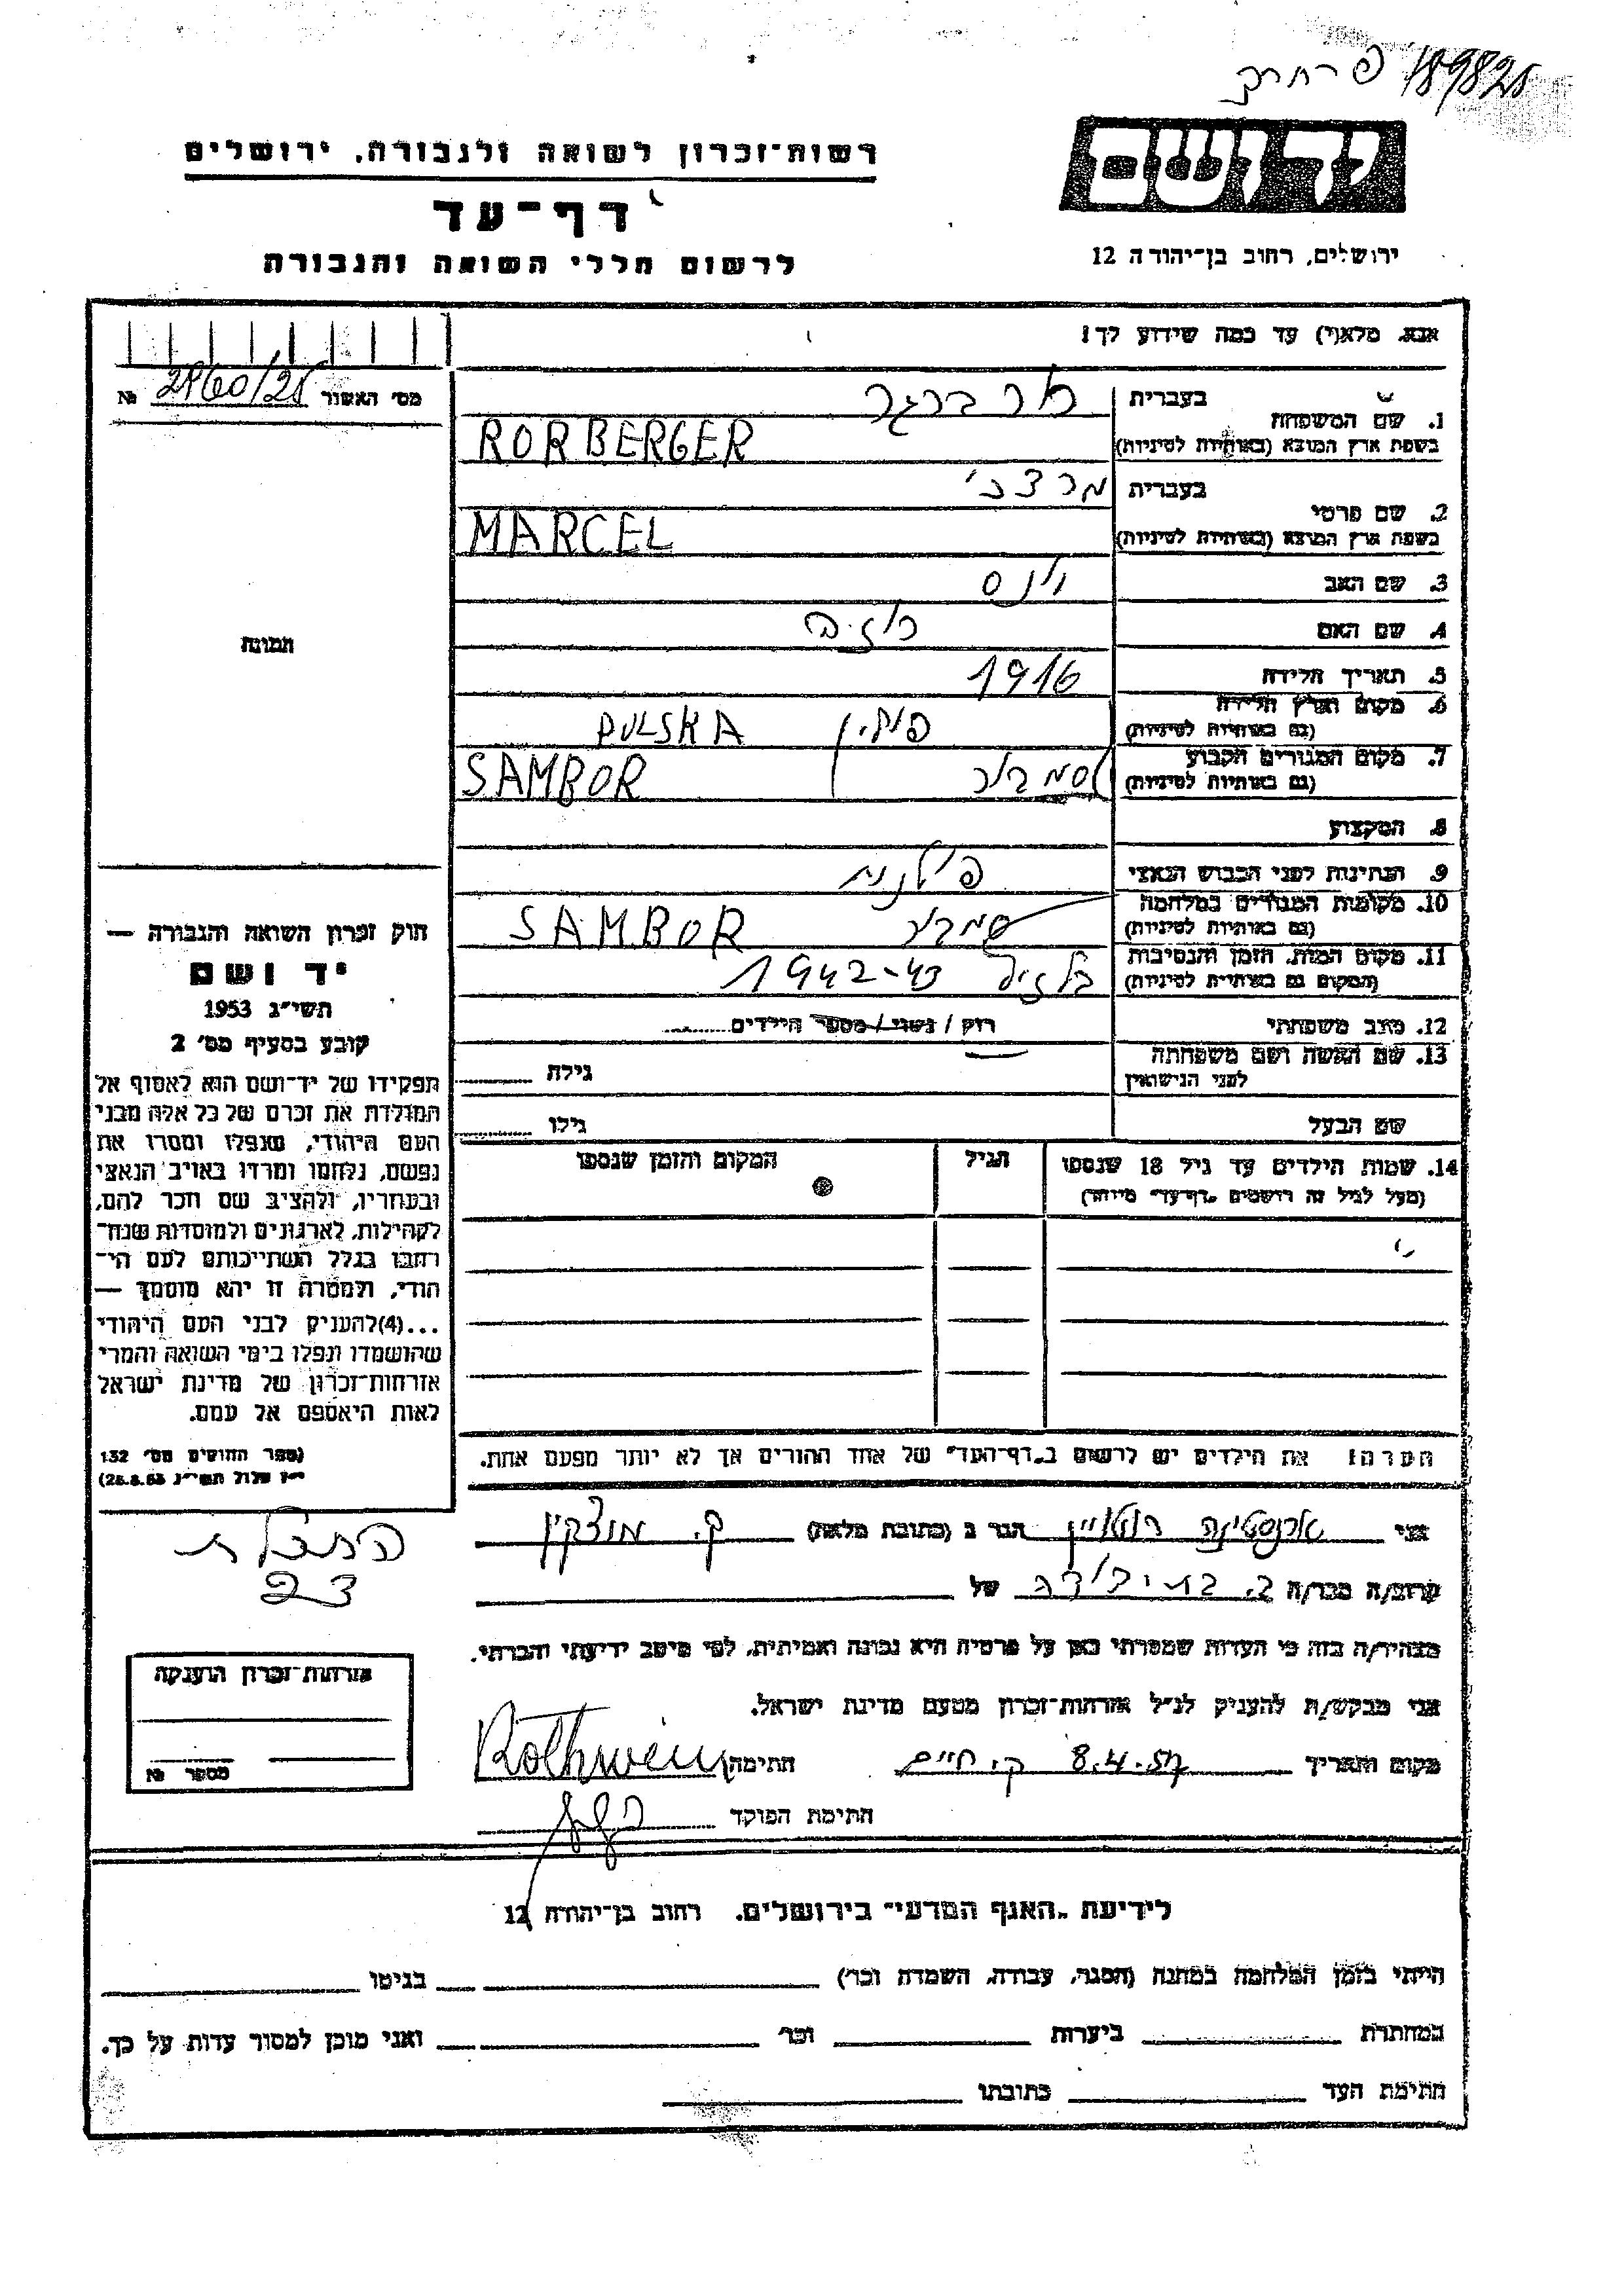 189825
יד ושם
רשות־זכרון לשואה ולגבורה, ירושלים
דף־עד
לרשום חללי השואה והגבורה
ירושלים, רחוב בן־יהודה 12
אנא, מלא(י) עד כמה שידוע לך!
מס׳ האשור № 2860/25
תמונה
1. שם המשפחה
בעברית רורברגר
בשפת ארץ המוצא (באותיות לטיניות) RORBERGER
2. שם פרטי
בעברית
בשפת ארץ המוצא (באותיות לטיניות) MARCEL
3. שם האב
4. שם האם רוזיה
5. תאריך הלידה 1916
6. מקום וארץ הלידה פולין PULSKA
(גם באותיות לטיניות)
7. מקום המגורים הקבוע סמבור SAMBOR
(גם באותיות לטיניות)
8. המקצוע
9. הנתינות לפני הכבוש הנאצי פולנית
10. מקומות המגורים במלחמה סמבור SAMBOR
(גם באותיות לטיניות)
11. מקום המות, הזמן והנסיבות 1942-43
(המקום גם באותיות לטיניות)
12. מצב משפחתי רווק / נשוי / מספר הילדים
13. שם האשה ושם משפחתה
לפני הנישואין גילה
שם הבעל גילו
14. שמות הילדים עד גיל 18 שנספו הגיל המקום והזמן שנספו
(מעל לגיל זה רושמים „דף־עד״ מיוחד)
הערה: את הילדים יש לרשום ב„דף־העד״ של אחד ההורים אך לא יותר מפעם אחת.
חוק זכרון השואה והגבורה —
יד ושם
תשי״ג 1953
קובע בסעיף מס׳ 2
תפקידו של יד־ושם הוא לאסוף אל
המולדת את זכרם של כל אלה מבני
העם היהודי, שנפלו ומסרו את
נפשם, נלחמו ומרדו באויב הנאצי
ובעוזריו, ולהציב שם וזכר להם,
לקהילות, לארגונים ולמוסדות שנח־
רבו בגלל השתייכותם לעם הי־
הודי, ולמטרה זו יהא מוסמך —
...(4)להעניק לבני העם היהודי
שהושמדו ונפלו בימי השואה והמרי
אזרחות־זכרון של מדינת ישראל
לאות היאספם אל עמם.
(ספר החוקים מס׳ 132
י״ז אלול תשי״ג 28.8.53)
אני ארנסטינה רוטויין הגר ב (כתובת מלאה) ק. מוצקין
23
קרוב/ה מכר/ה של
מצהיר/ה בזה כי העדות שמסרתי כאן על פרטיה היא נכונה ואמיתית, לפי מיטב ידיעתי והכרתי.
אני מבקש/ת להעניק לנ״ל אזרחות־זכרון מטעם מדינת ישראל.
מקום ותאריך 8.4.57 ק. חיים חתימה Rothwein
חתימת הפוקד
אזרחות־זכרון הוענקה
מספר №
לידיעת „האגף המדעי״ בירושלים, רחוב בן־יהודה 12
הייתי בזמן המלחמה במחנה (הסגר, עבודה, השמדה וכר׳) בגיטו
במחתרת ביערות וכר׳ ואני מוכן למסור עדות על כך.
חתימת העד כתובתו